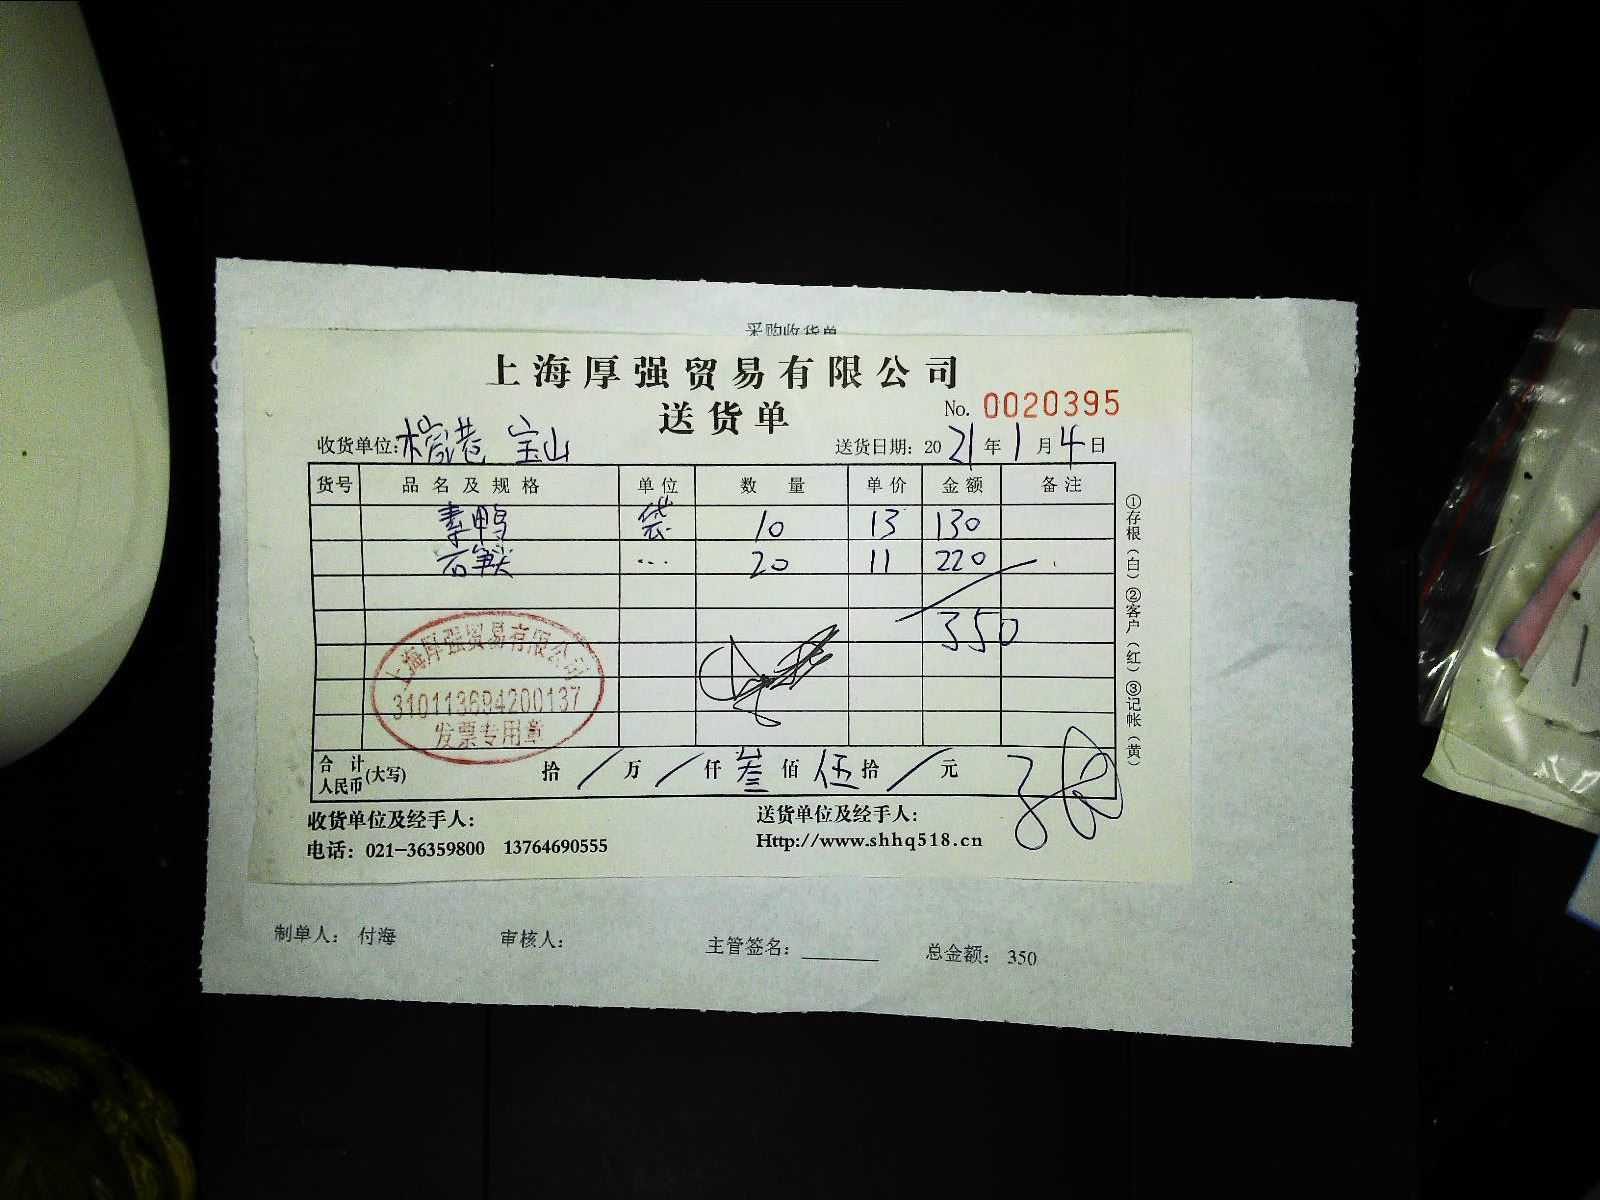 采购收货单
上海厚强贸易有限公司
送货单
No. 0020395
收货单位: 宝山
送货日期: 2021年1月4日
货号 品名及规格 单位 数量 单价 金额 备注
素鸭 袋 10 13 130
石笋尖 … 20 11 220
350
上海厚强贸易有限公司
310113694200137
发票专用章
合计人民币(大写) 拾 / 万 / 仟 叁 佰 伍 拾 / 元
①存根(白)②客户(红)③记帐(黄)
收货单位及经手人:
送货单位及经手人:
电话: 021-36359800 13764690555
Http://www.shhq518.cn
制单人: 付海 审核人: 主管签名: 总金额: 350